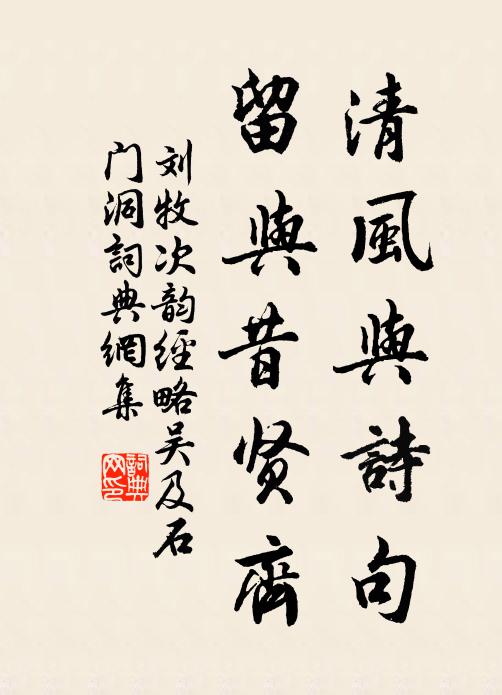 清風與詩句
留與昔贤齋
刘牧次韵經略吴及石
门洞詞典網集
詞典网印